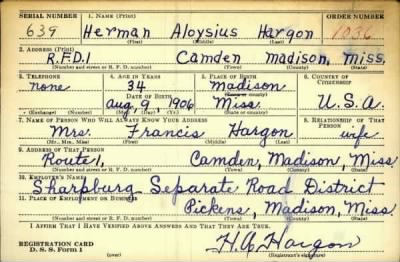 SERIAL NUMBER 1. NAME (Print) ORDER NUMBER
639 Herman Aloysius Hargon 1036
(First) (Middle) (Last)
2. ADDRESS (Print)
R.F.D.1 Camden Madison, Miss.
(Number and street or R. F. D. number) (Town) (County) (State)
3. TELEPHONE 4. AGE IN YEARS 5. PLACE OF BIRTH 6. COUNTRY OF CITIZENSHIP
none 34 Madison
DATE OF BIRTH (Town or county)
Aug, 9, 1906 Miss. U.S.A.
(Exchange) (Number) (Mo.) (Day) (Yr.) (State or country)
7. NAME OF PERSON WHO WILL ALWAYS KNOW YOUR ADDRESS 8. RELATIONSHIP OF THAT PERSON
Mrs. Francis Hargon wife
(Mr., Mrs., Miss) (First) (Middle) (Last)
9. ADDRESS OF THAT PERSON
Route 1, Camden, Madison, Miss
(Number and street or R. F. D. number) (Town) (County) (State)
10. EMPLOYER'S NAME
Sharpburg Separate Road District
11. PLACE OF EMPLOYMENT OR BUSINESS
Pickens, Madison, Miss
(Number and street or R. F. D. number) (Town) (County) (State)
I AFFIRM THAT I HAVE VERIFIED ABOVE ANSWERS AND THAT THEY ARE TRUE.
REGISTRATION CARD
D. S. S. Form 1 H. A. Hargon
(Registrant's signature)